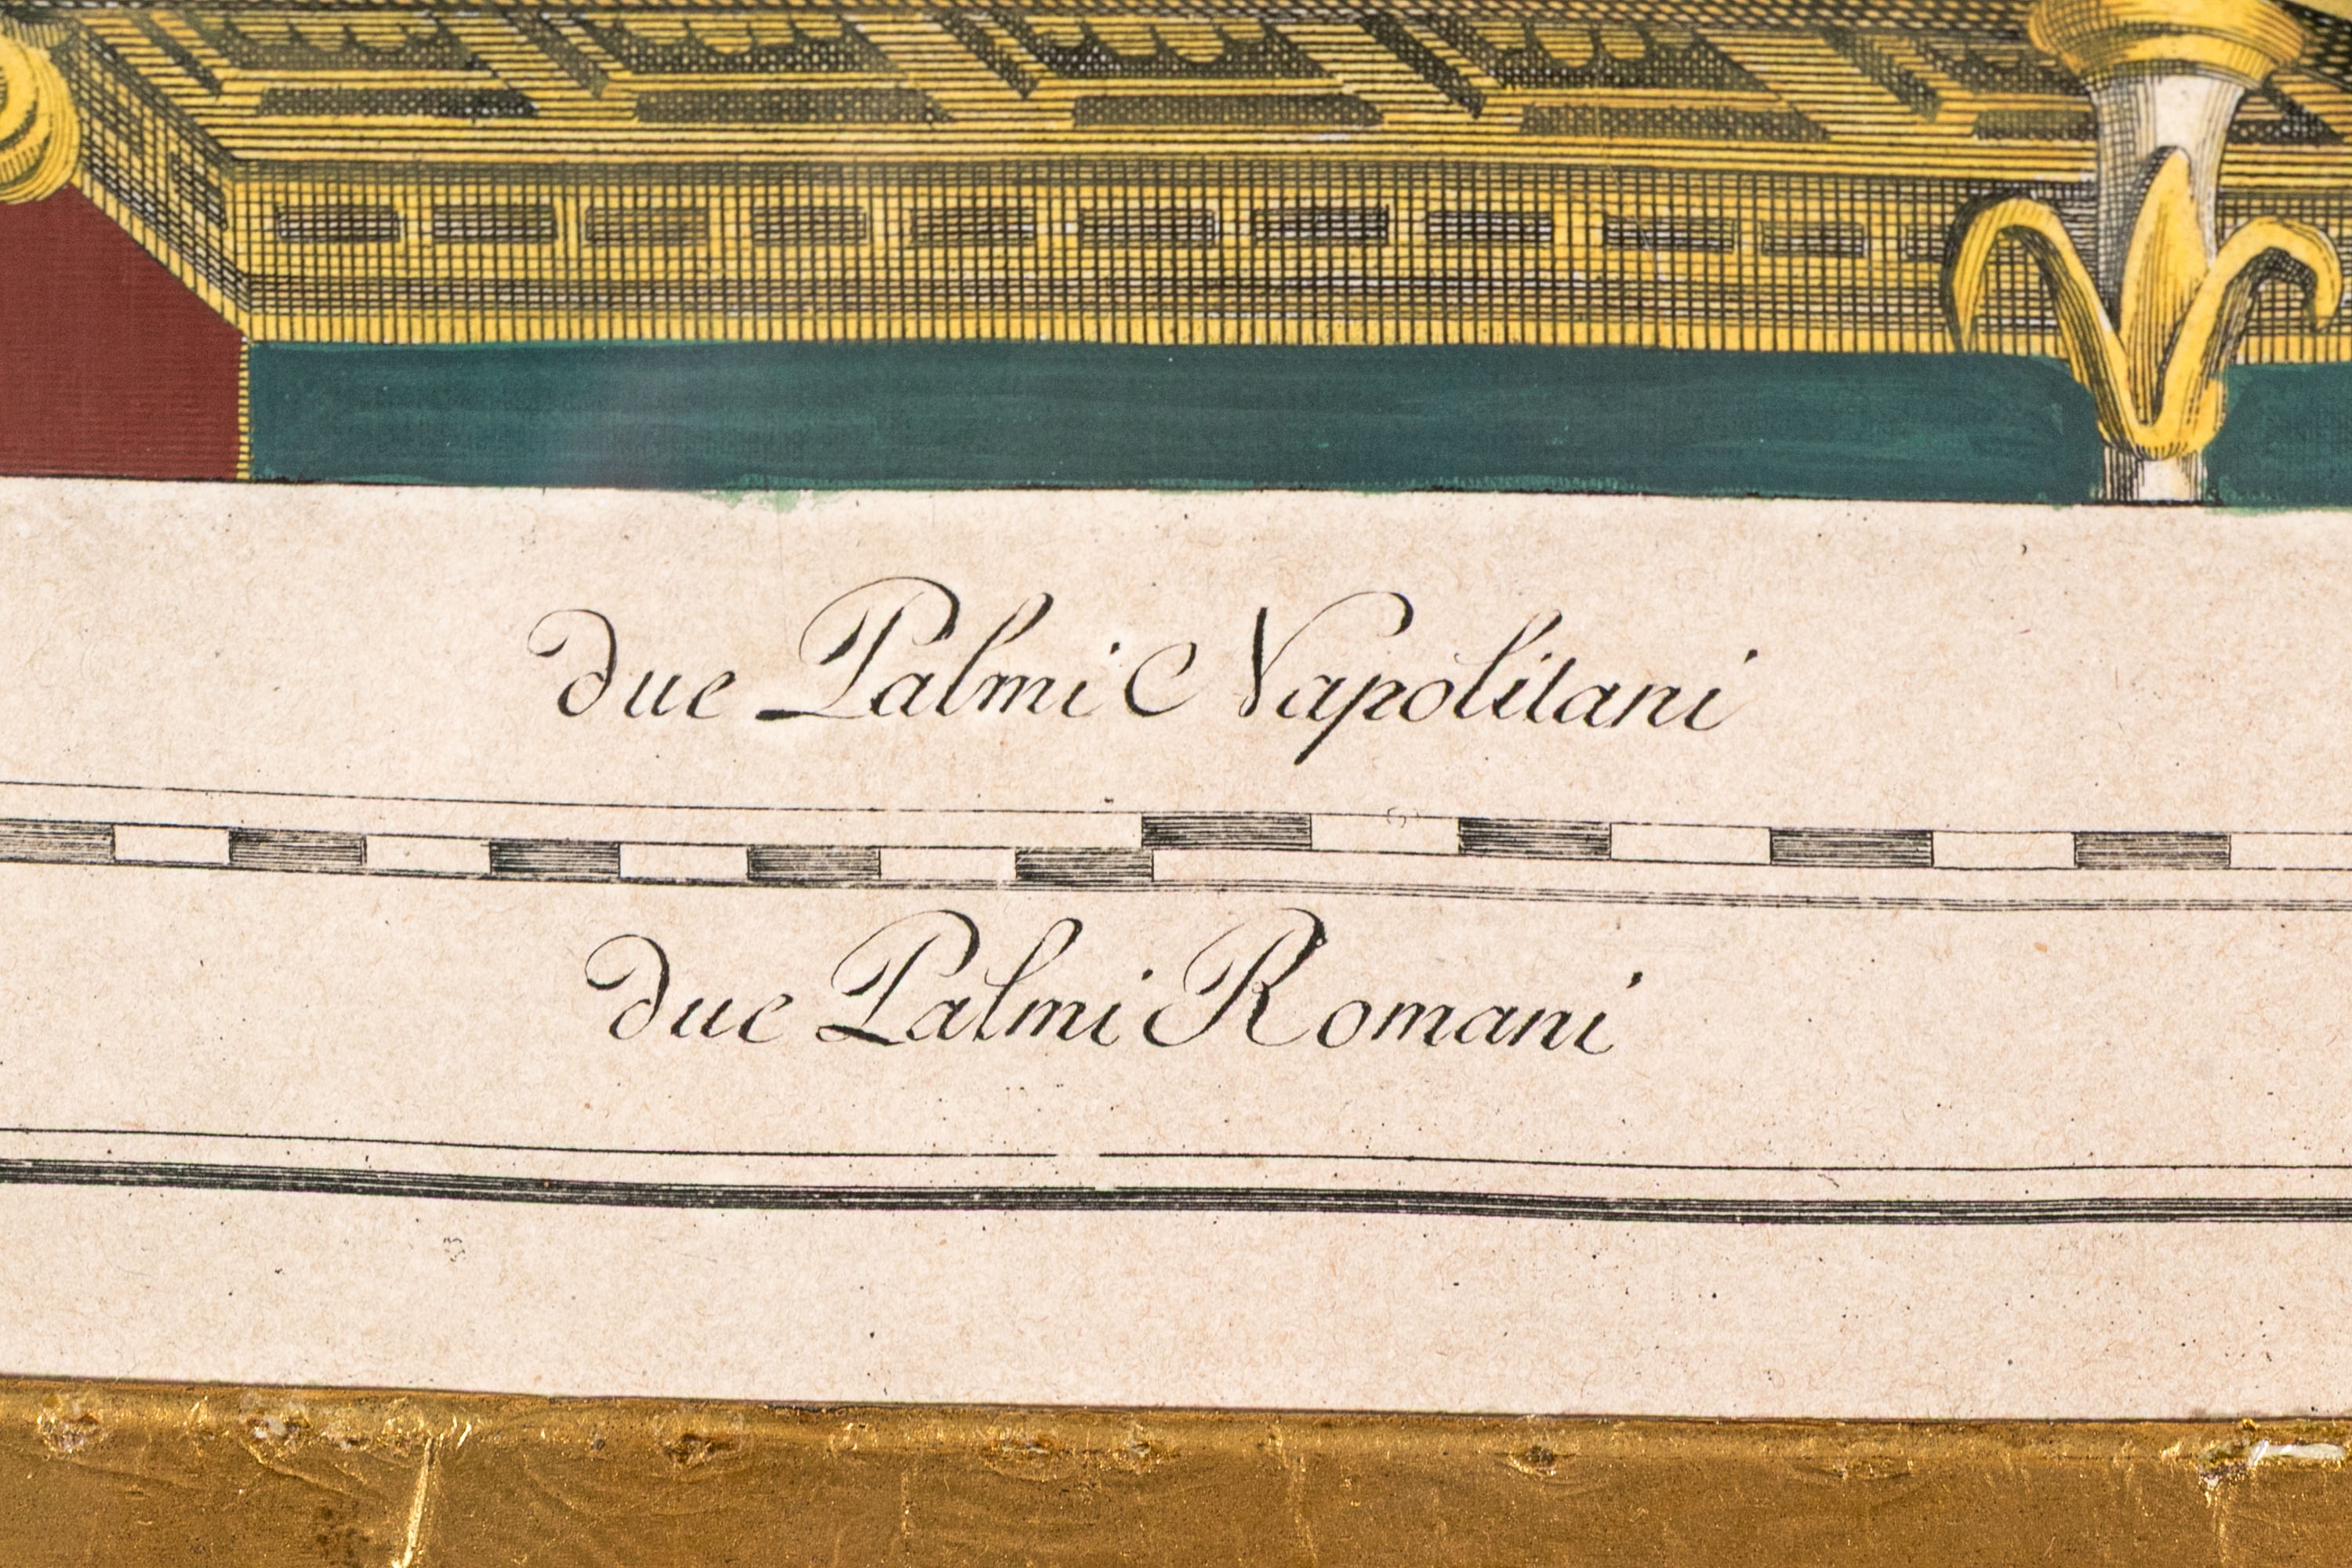 due Palmi Napolitani
due Palmi Romani